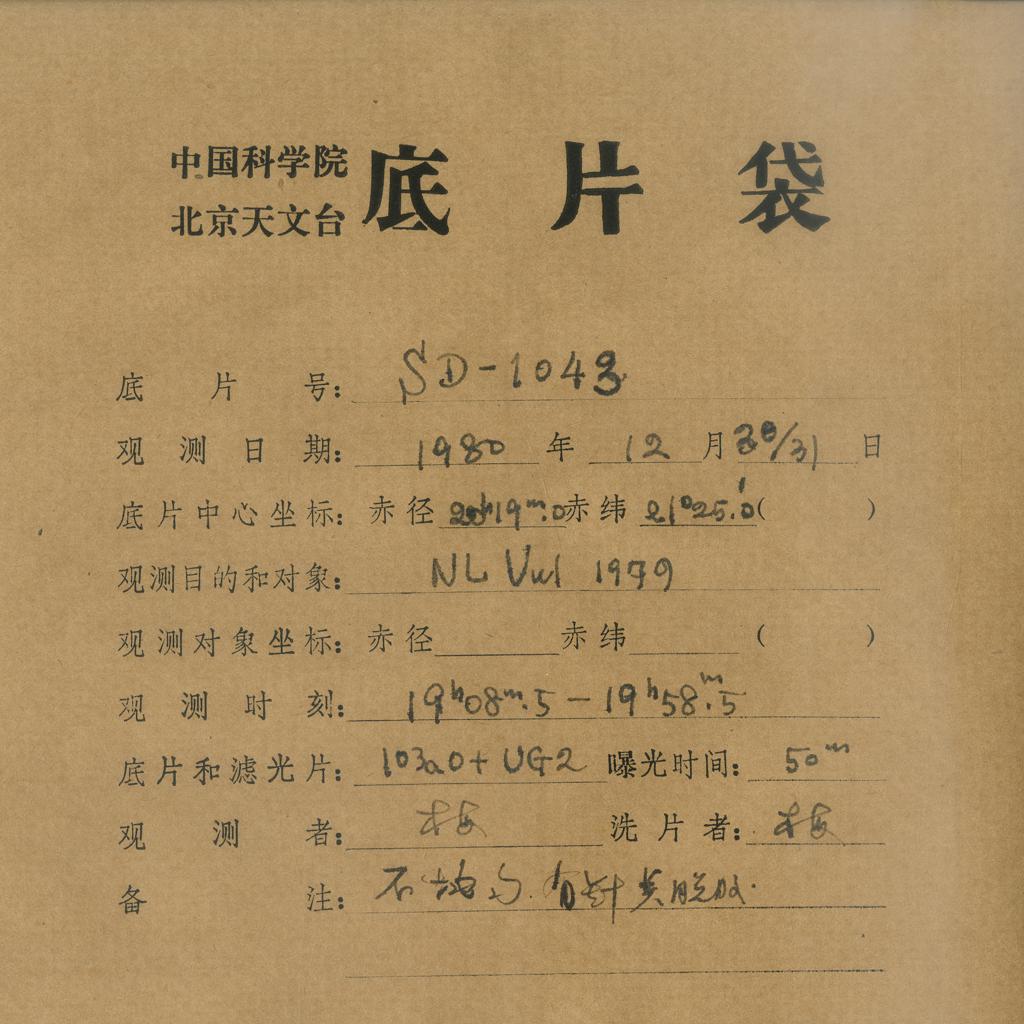 中国科学院
北京天文台
底片袋
底片号: SD-1043
观测日期: 1980 年 12 月 30/31 日
底片中心坐标: 赤径 20h19m.0 赤纬 21°25'.0 ( )
观测目的和对象: NL Vul 1979
观测对象坐标: 赤径 赤纬 ( )
观测时刻: 19h08m.5 - 19h58m.5
底片和滤光片: 103aO + UG2 曝光时间: 50m
观测者: 梅 洗片者: 梅
备注: 不